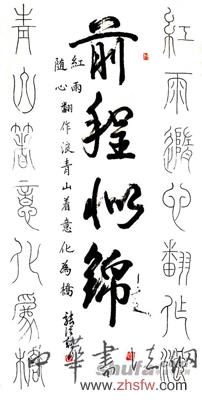 紅雨隨心翻作浪
前程似錦
紅雨
随心翻作浪青山着意化為橋
青山箸意化為橋
中華書法網
www.zhsfw.com